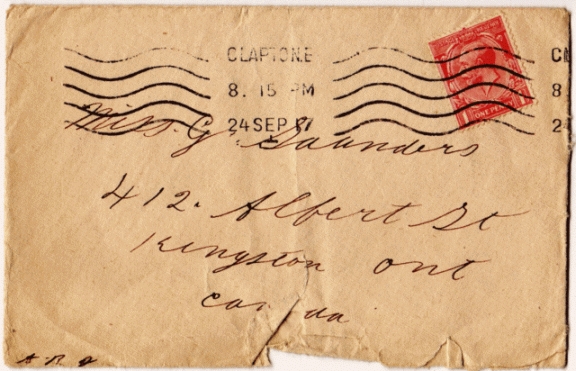 CLAPTON.E
8. 15 PM
24 SEP 17
CL
8
24
ONE PENNY
Miss. G. Saunders
412. Albert St
Kingston Ont
Canada